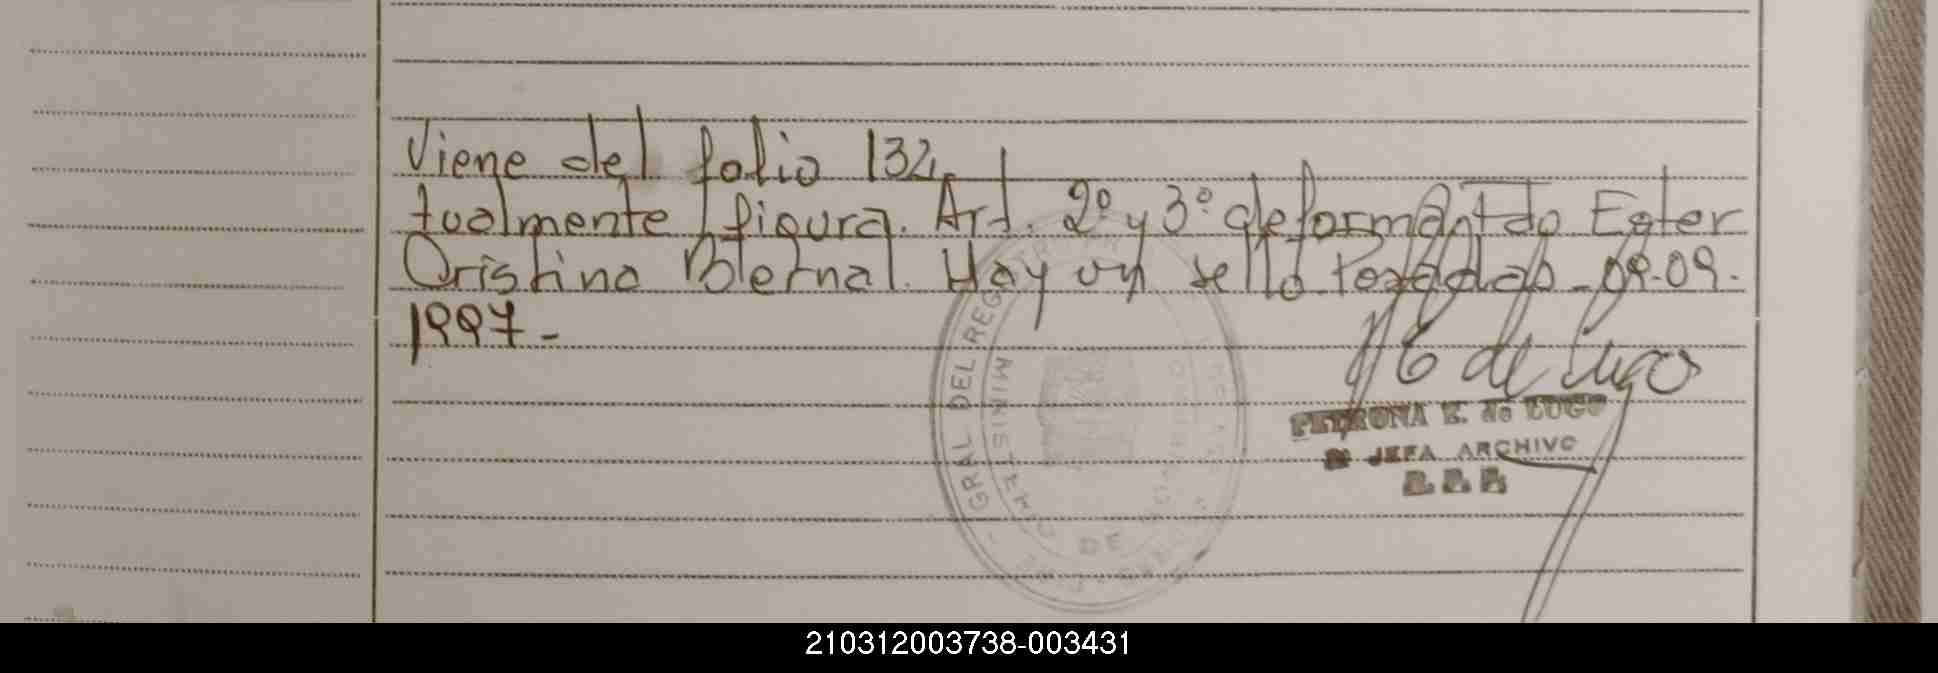 Viene del folio 132
tualmente figura. Art. 2º y 3º de forma Ester
Cristina Bernal. Hay un sello 09-09-
1997-
GRAL DEL REG
MINISTERIO DE
PETRONA E. de LUGO
JEFA ARCHIVO
210312003738-003431